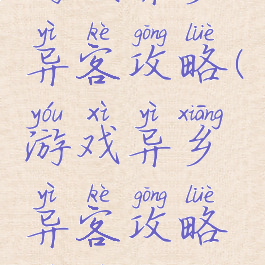 yì kè gōng lüè
异客攻略(
yóu xì yì xiāng
游戏异乡
yì kè gōng lüè
异客攻略